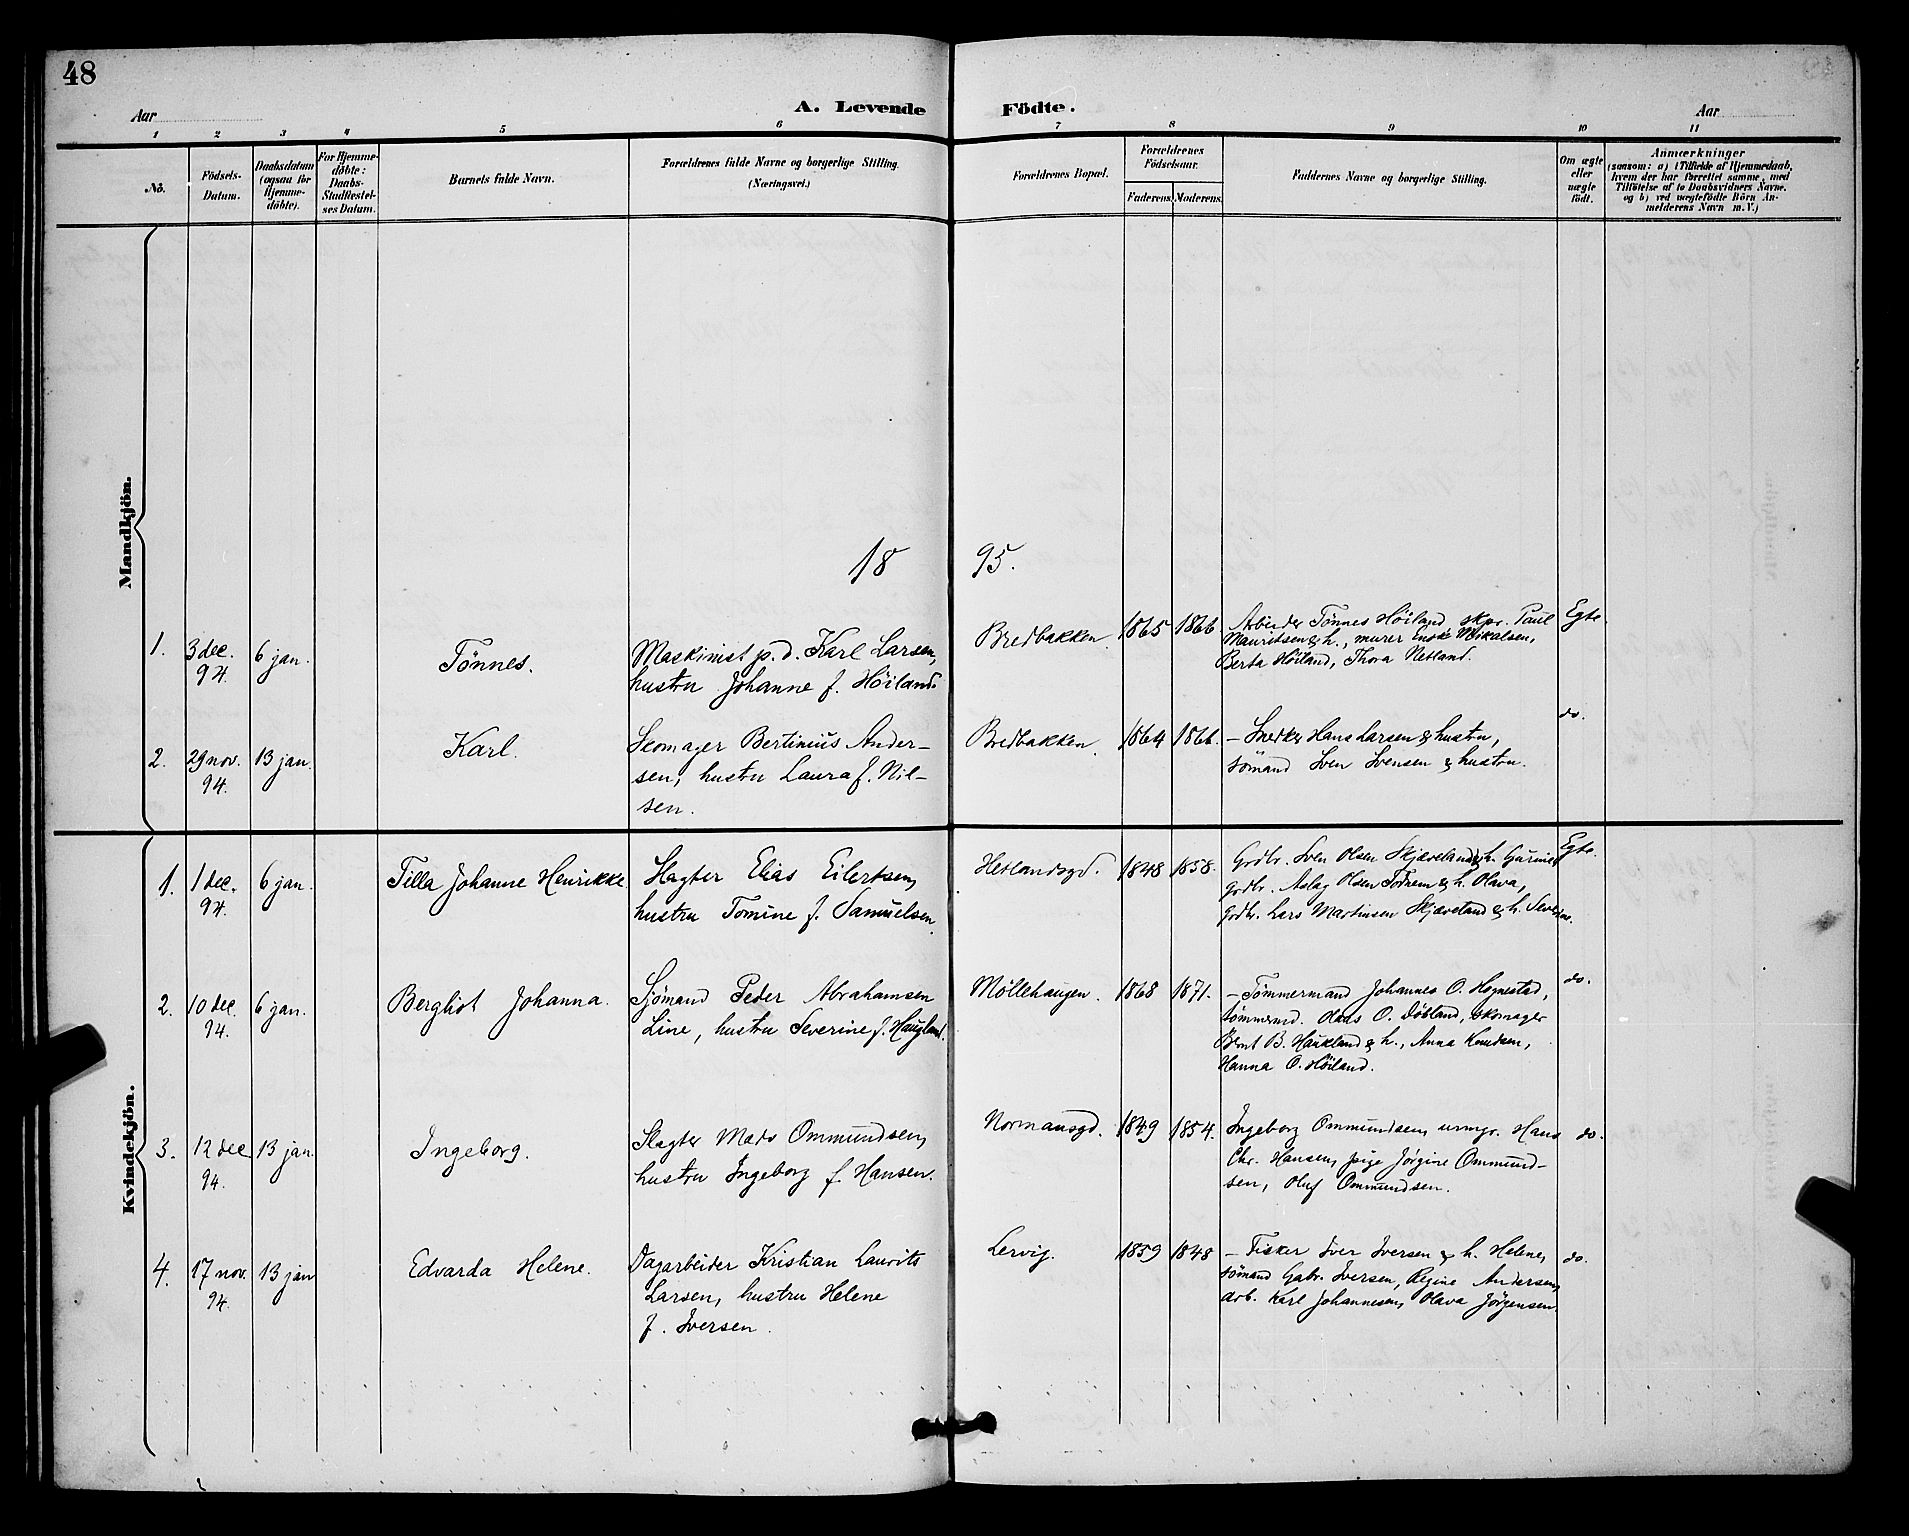 48
A. Levende Födte.
Aar
Aar
1 2 3 4 5 6 7 8 9 10 11
No.
Födsels-
Datum.
Daabsdatum
(ogsaa for
Hjemme-
döbte).
For Hjemme-
döbte:
Daabs-
Stadfæstel-
ses Datum.
Barnets fulde Navn.
Forældrenes fulde Navne og borgerlige Stilling.
(Næringsvei.)
Forældrenes Bopæl.
Forældrenes
Födselsaar.
Faderens Moderens.
Faddernes Navne og borgerlige Stilling.
Om ægte
eller
uægte
födt.
Anmærkninger
(saasom: a) i Tilfælde af Hjemmedaab,
hvem der har forrettet samme, med
Tilföielse af to Daabsvidners Navne.
og b) ved uægtefödte Börn An-
melderens Navn m. V.)
Mandkjön.
18 95.
1.
3 dec.
94.
6 jan.
Tönnes.
Maskinist p. d. Karl Larsen,
hustru Johanne f. Höiland.
Bredbakken.
1865
1866
Arbeider Tönnes Höiland, skpr. Paul
Mauritsen & h., murer Mikalsen,
Berta Höiland, Thora Netland.
Egte.
2.
29 nov.
94.
13 jan.
Karl.
Skomager Bertinius Ander-
sen, hustru Laura f. Nil-
sen.
Bredbakken.
1864
1866.
– Snedker Hans Larsen & hustru,
sömand Sven Svensen & hustru.
do.
Kvindekjön.
1.
1 dec.
94.
6 jan.
Tilla Johanne Henrikke
Slagter Elias Eilertsen,
hustru Tomine f. Samuelsen.
Hetlandsgd.
1848
1858.
Grdbr. Sven Olsen Skjæveland & h. Gurine,
grdbr. Aslag Olsen Födnem & h. Olava,
grdbr. Lars Martinsen Skjæveland & h. Severine.
Egte.
2.
10 dec.
94.
6 jan.
Bergliot Johanna.
Sjömand Peder Abrahamsen
Line, hustru Severine f. Haugland.
Möllehaugen.
1868
1871.
– Tömmermand Johannes O. Hognestad,
tömmermd. Olaus O. skomager
Bernt B. Haukland & h., Anna Knudsen,
Hanna O. Höiland.
do.
3.
12 dec
94.
13 jan.
Ingeborg.
Slagter Mads Ommundsen,
hustru Ingeborg f. Hansen.
Normansgd.
1849
1854.
Ingeborg Ommundsen, urmgr. Hans
Chr. Hansen, pige Jörgine Ommund-
sen, Oluf Ommundsen.
do.
4.
17 nov.
94.
13 jan
Edvarda Helene.
Dagarbeider Kristian Laurits
Larsen, hustru Helene
f. Iversen.
Lervig.
1859
1848
– Fisker Iver Iversen & h. Helene,
sömand Gabr. Iversen, Regine Andersen,
arb. Karl Johannesen, Olava Jörgensen.
do.